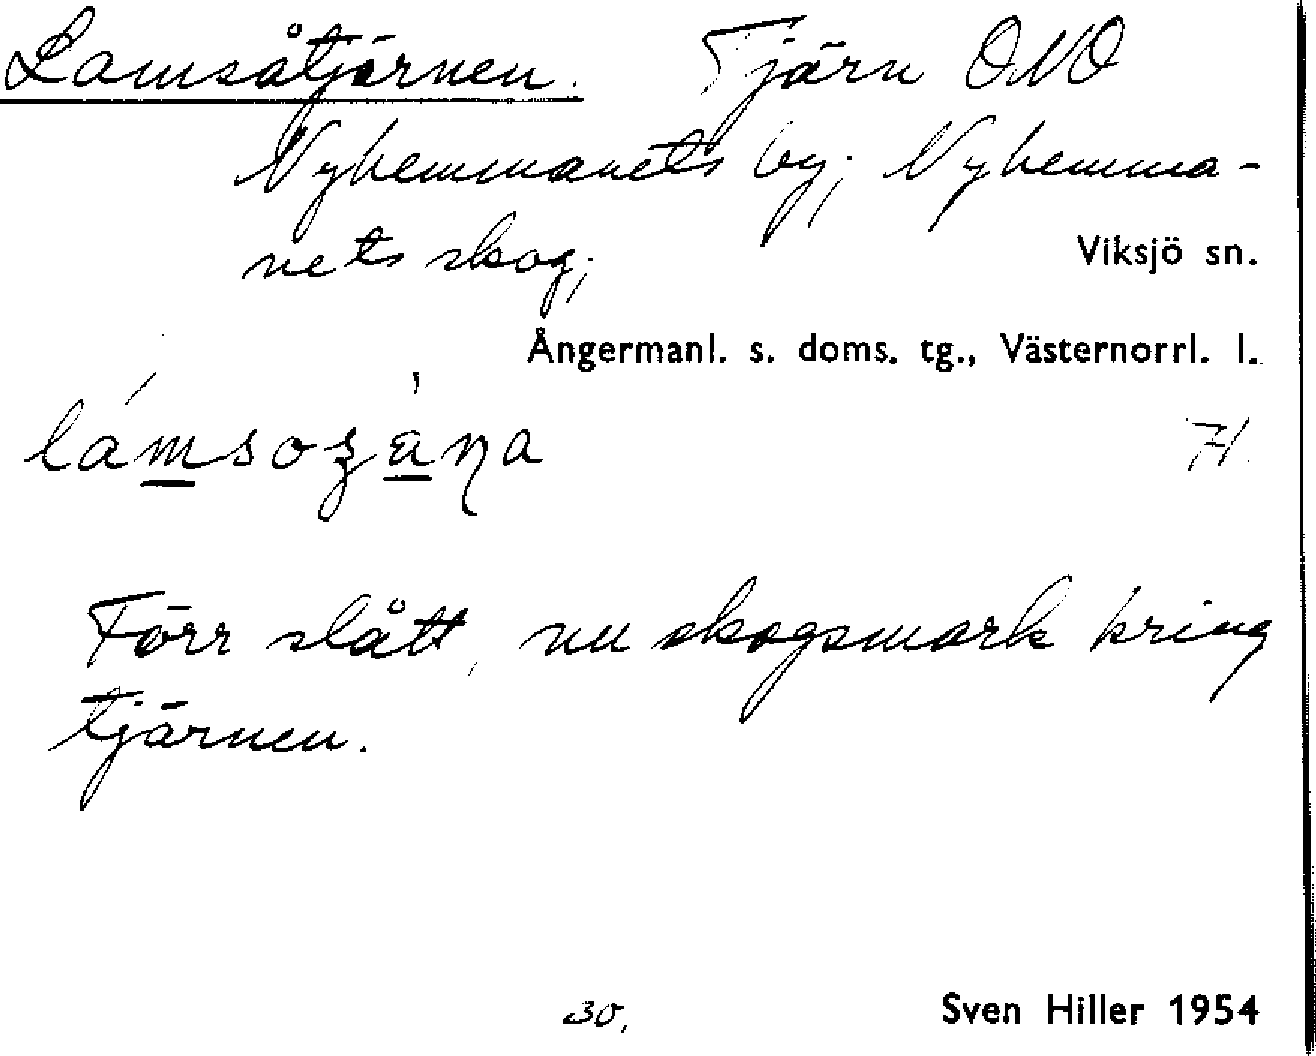 Lamsåtjärnen. Tjärn ONO
Nyhemmanets by; Nyhemma-
nets skog;
Viksjö sn.
Ångermanl. s. doms. tg., Västernorrl. l.
71.
Förr slått, nu skogsmark kring
tjärnen.
30.
Sven Hiller 1954